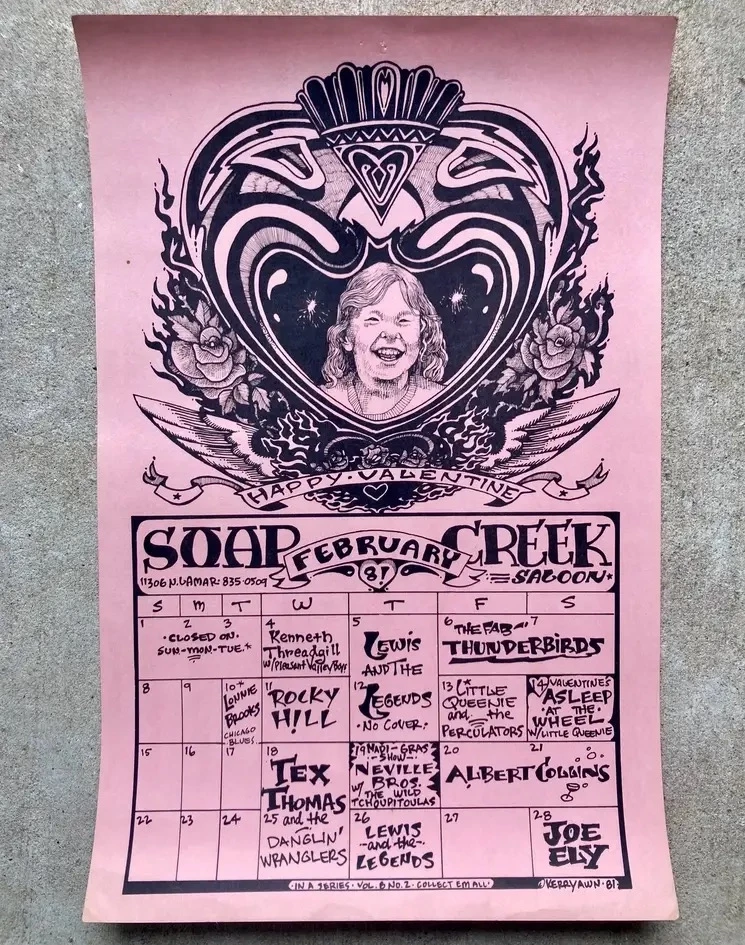 HAPPY·VALENTINE
SOAP CREEK
FEBRUARY
81
SALOON
11306 N. LAMAR· 835·0509
S M T W T F S
1 2 3 4 5 6 7
·CLOSED ON·
SUN-MON-TUE.*
Kenneth
Threadgill
W/Pleasant Valley Boys
LEWIS
AND THE
THE FAB
THUNDERBIRDS
8 9 10 11 12 13 14
LONNIE
BROOKS
CHICAGO
BLUES
ROCKY
HILL
LEGENDS
·NO COVER·
L*ITTLE
QUEENIE
and the
PERCULATORS
VALENTINE'S
ASLEEP
·AT THE·
WHEEL
W/LITTLE QUEENIE
15 16 17 18 19 20 21
TEX
THOMAS
MADI-GRAS
SHOW
NEVILLE
BROS.
W/ THE WILD
TCHOUPITOULAS
ALBERT COLLINS
22 23 24 25 26 27 28
and the
DANGLIN'
WRANGLERS
LEWIS
and the
LEGENDS
JOE
ELY
·IN A SERIES·VOL. 8 NO. 2·COLLECT EM ALL·
©KERRY AWN·81